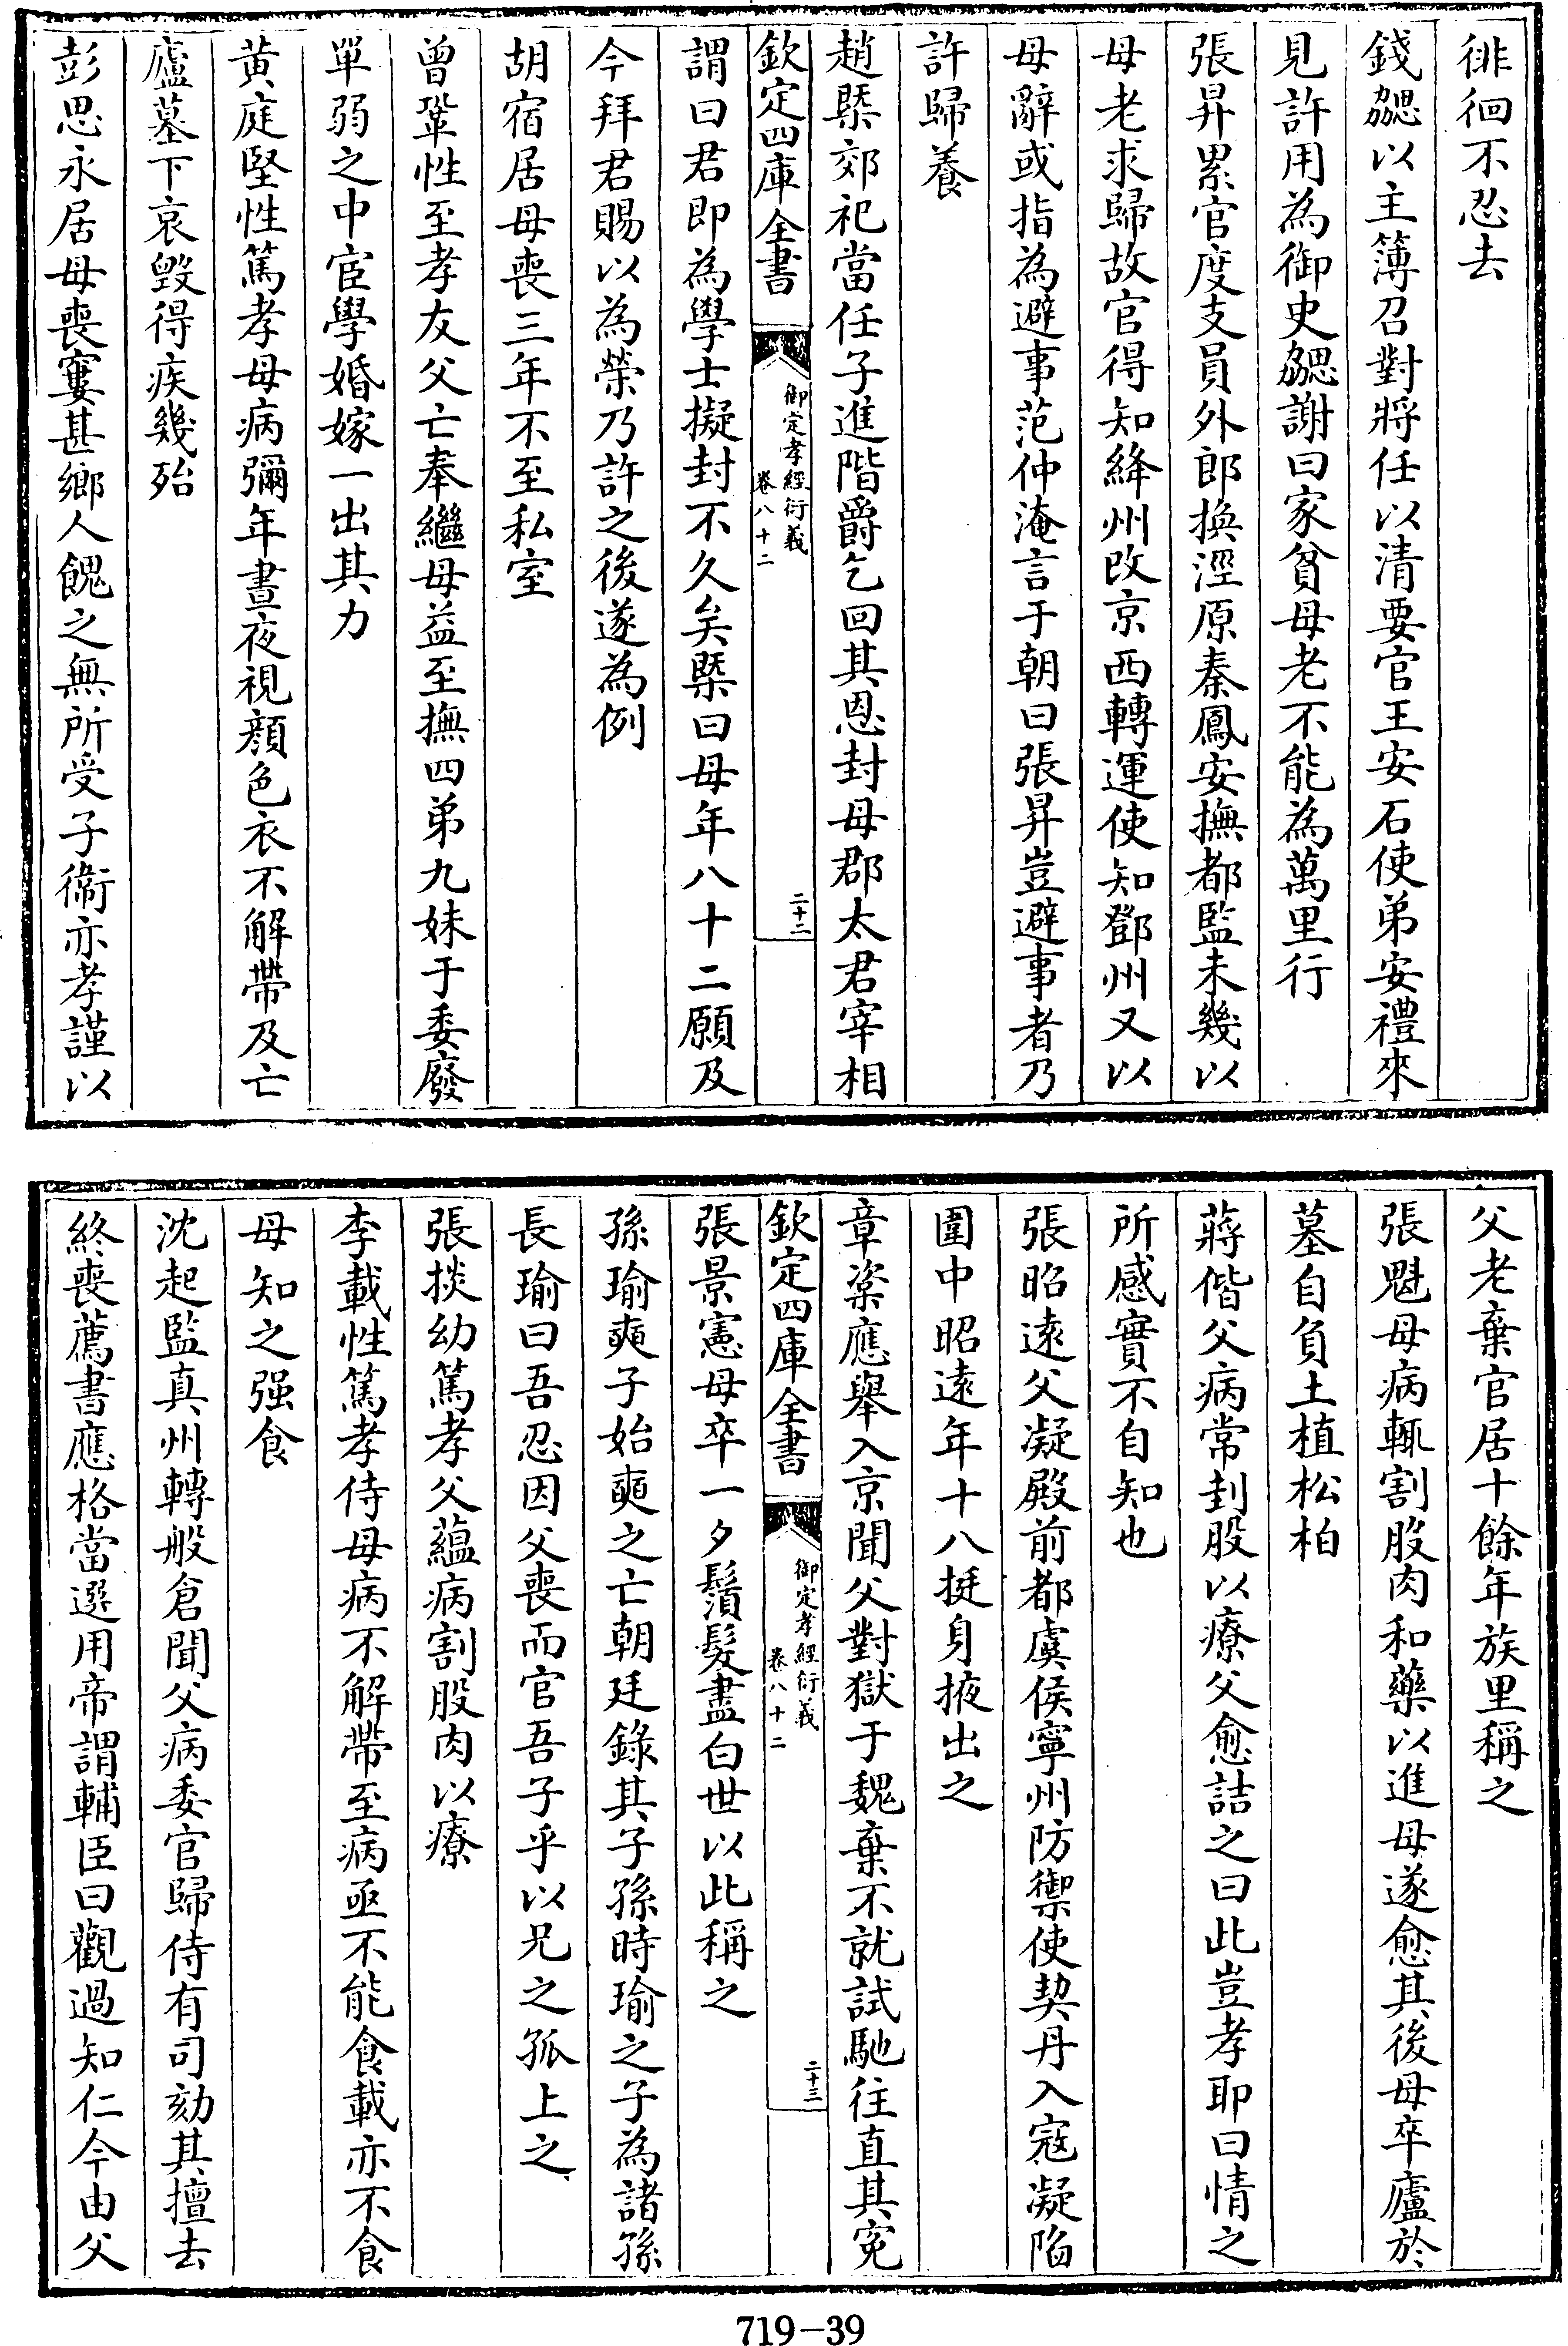 徘徊不忍去
錢勰以主簿召對將任以清要官王安石使弟安禮來
見許用為御史勰謝曰家貧母老不能為萬里行
張昇累官度支員外郎換涇原秦鳳安撫都監未幾以
母老求歸故官得知絳州改京西轉運使知鄧州又以
母辭或指為避事范仲淹言于朝曰張昇豈避事者乃
許歸養
趙槩郊祀當任子進階爵乞回其恩封母郡太君宰相
欽定四庫全書
御定孝經衍義
卷八十二
二十二
謂曰君即為學士擬封不久矣槩曰母年八十二願及
今拜君賜以為榮乃許之後遂為例
胡宿居母喪三年不至私室
曾鞏性至孝友父亡奉繼母益至撫四弟九妹于委廢
單弱之中宦學婚嫁一出其力
黄庭堅性篤孝母病彌年晝夜視顔色衣不解帶及亡
廬墓下哀毁得疾幾殆
彭思永居母喪窶甚鄉人餽之無所受子衞亦孝謹以
父老棄官居十餘年族里稱之
張魁母病輒割股肉和藥以進母遂愈其後母卒廬於
墓自負土植松柏
蔣偕父病常刲股以療父愈詰之曰此豈孝耶曰情之
所感實不自知也
張昭遠父凝殿前都虞侯寧州防禦使契丹入寇凝陷
圍中昭遠年十八挺身掖出之
章楶應舉入京聞父對獄于魏棄不就試馳往直其寃
欽定四庫全書
御定孝經衍義
卷八十二
二十三
張景憲母卒一夕鬚髮盡白世以此稱之
孫瑜奭子始奭之亡朝廷錄其子孫時瑜之子為諸孫
長瑜曰吾忍因父喪而官吾子乎以兄之孤上之
張掞幼篤孝父蘊病割股肉以療
李載性篤孝侍母病不解帶至病亟不能食載亦不食
母知之强食
沈起監真州轉般倉聞父病委官歸侍有司劾其擅去
終喪薦書應格當選用帝謂輔臣曰觀過知仁今由父
719-39